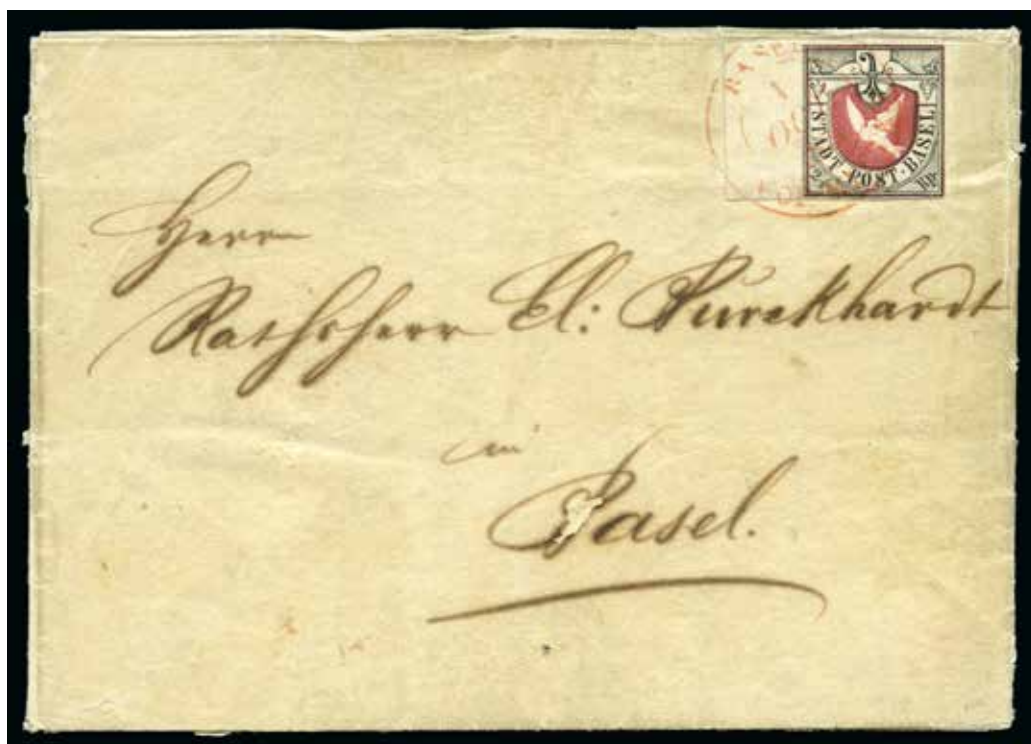 BASEL
1
STADT-POST-BASEL
2½ Rp.
Herrn
Rathsherr El: Burckhardt
in
Basel.